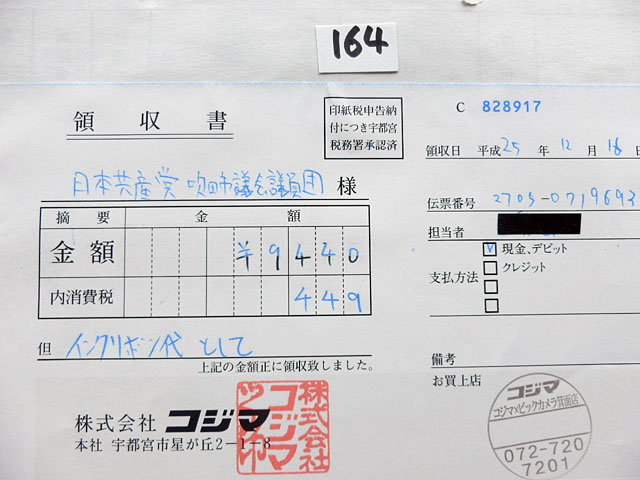 164
領収書
印紙税申告納
付につき宇都宮
税務署承認済
C 828917
領収日 平成25年12月16日
日本共産党吹田市議会議員団 様
伝票番号 2705-0719693
担当者
摘要 金額
金額 ¥9440
内消費税 449
支払方法
現金、デビット
クレジット
但 インクリボン代 として
上記の金額正に領収致しました。
備考
お買上店
株式会社 コジマ
本社 宇都宮市星が丘2-1-8
株式会社
コジマ
コジマ
コジマ×ビックカメラ箕面店
072-720
7201